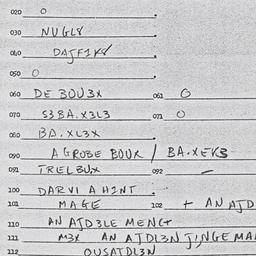 020 O
030 NUGLY
040 DAJFIKY
050 O
060 DE BOU3X 061 O
070 S3BA.X3L3 071 O
080 BA.XL3X
090 A GROBE BOUX / BA.XEK3
091 TRELBUX 092 –
100 DARVI A HINT
101 MAGE 102 + AN AJD
110 AN AJD3LE MENG+
111 M3X AN AJDL3N JINGE MA
112 OUSATDL3N